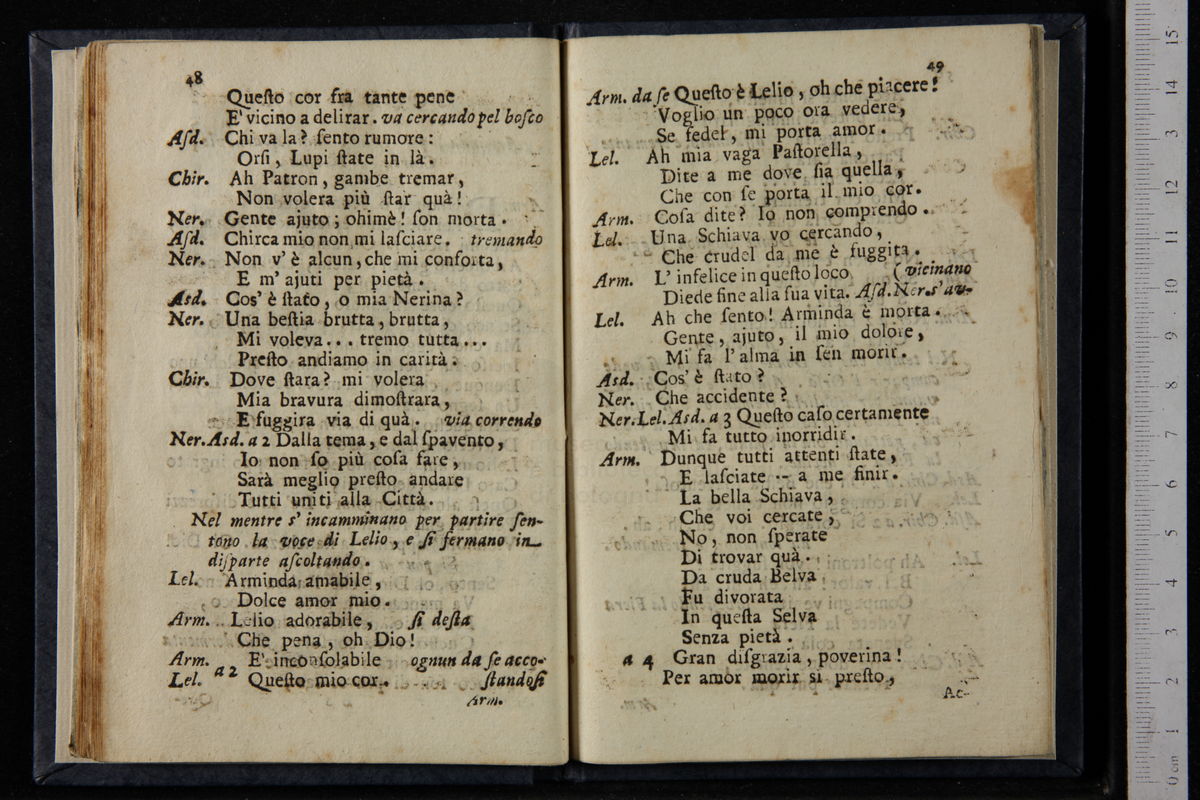 48
Queſto cor fra tante pene
E' vicino a delirar. va cercando pel boſco
Aſd. Chi va la? ſento rumore:
Orſi, Lupi ſtate in là.
Chir. Ah Patron, gambe tremar,
Non volera più ſtar quà!
Ner. Gente ajuto; ohimè! ſon morta.
Aſd. Chirca mio non mi laſciare. tremando
Ner. Non v'è alcun, che mi conforta,
E m' ajuti per pietà.
Asd. Cos' è ſtato, o mia Nerina?
Ner. Una beſtia brutta, brutta,
Mi voleva... tremo tutta...
Preſto andiamo in carità.
Chir. Dove ſtara? mi volera
Mia bravura dimoſtrara,
E fuggira via di quà. via correndo
Ner. Asd. a 2 Dalla tema, e dal ſpavento,
Io non ſo più coſa fare,
Sarà meglio preſto andare
Tutti uniti alla Città.
Nel mentre s' incamminano per partire ſen-
tono la voce di Lelio, e ſi fermano in
diſparte aſcoltando.
Lel. Arminda amabile,
Dolce amor mio.
Arm. Lelio adorabile, ſi deſta
Che pena, oh Dio!
Arm. E' inconſolabile ognun da ſe acco-
Lel. a 2 Queſto mio cor. ſtandoſi
Arm.
49
Arm. da ſe Queſto è Lelio, oh che piacere!
Voglio un poco ora vedere,
Se fedel, mi porta amor.
Lel. Ah mia vaga Paſtorella,
Dite a me dove ſia quella,
Che con ſe porta il mio cor.
Arm. Coſa dite? Io non comprendo.
Lel. Una Schiava vo cercando,
Che crudel da me è fuggita.
Arm. L' infelice in queſto loco (vicinano
Diede fine alla ſua vita. Aſd. Ner. s'av-
Lel. Ah che ſento! Arminda è morta.
Gente, ajuto, il mio dolore,
Mi fa l'alma in ſen morir.
Asd. Cos' è ſtato?
Ner. Che accidente?
Ner. Lel. Asd. a 3 Queſto caſo certamente
Mi fa tutto inorridir.
Arm. Dunque tutti attenti ſtate,
E laſciate -- a me finir.
La bella Schiava,
Che voi cercate,
No, non ſperate
Di trovar quà.
Da cruda Belva
Fu divorata
In queſta Selva
Senza pietà.
a 4 Gran diſgrazia, poverina!
Per amor morir sì preſto,
Ac-
0 cm 1 2 3 4 5 6 7 8 9 10 11 12 13 14 15